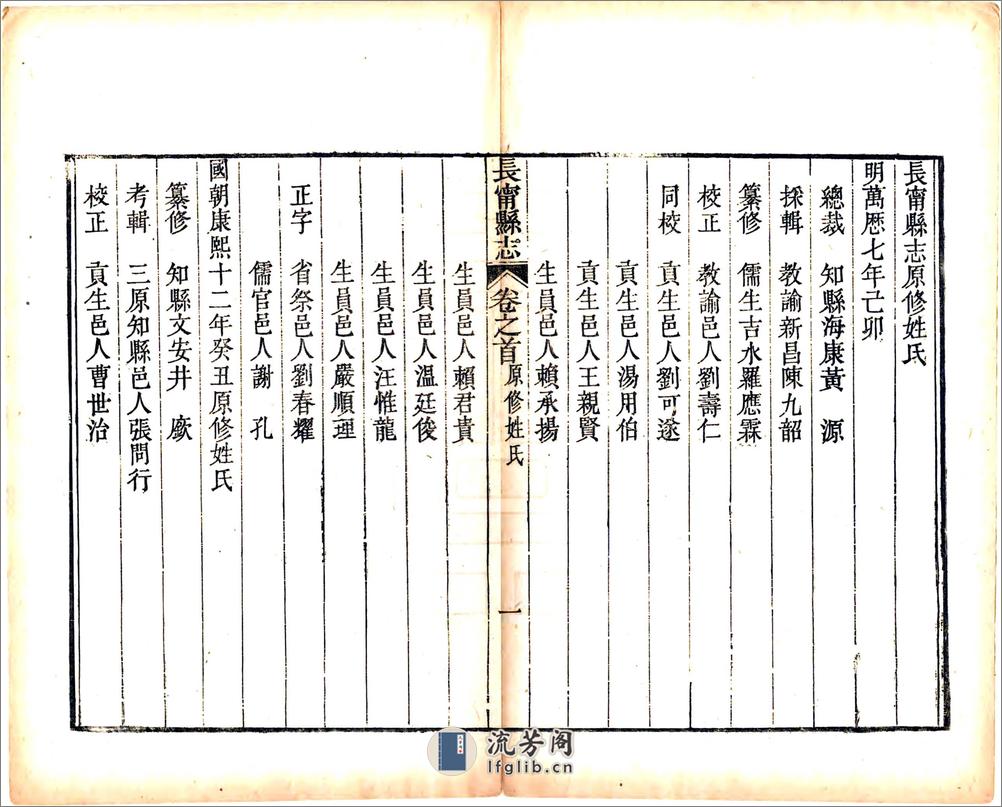 長甯縣志原修姓氏
明萬歷七年己卯
總裁　知縣海康黃　源
採輯　教諭新昌陳九韶
纂修　儒生吉水羅應霖
校正　教諭邑人劉壽仁
同校　貢生邑人劉可遂
貢生邑人湯用伯
貢生邑人王親賢
生員邑人賴承揚
長甯縣志　卷之首　原修姓氏　一
生員邑人賴君貴
生員邑人溫廷俊
生員邑人汪惟龍
生員邑人嚴順理
正字　省祭邑人劉春耀
儒官邑人謝　孔
國朝康熙十二年癸丑原修姓氏
纂修　知縣文安井　厫
考輯　三原知縣邑人張問行
校正　貢生邑人曹世治
流芳阁
lfglib.cn